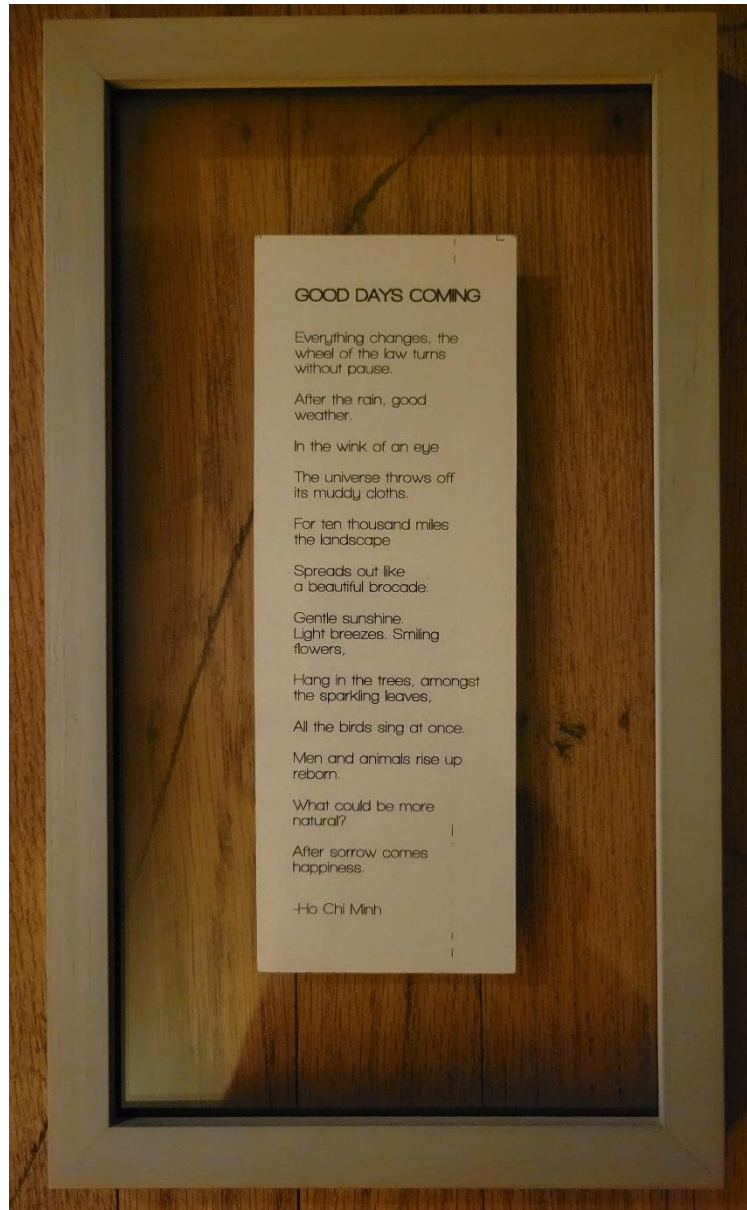 GOOD DAYS COMING
Everything changes, the
wheel of the law turns
without pause.
After the rain, good
weather.
In the wink of an eye
The universe throws off
its muddy cloths.
For ten thousand miles
the landscape
Spreads out like
a beautiful brocade.
Gentle sunshine.
Light breezes. Smiling
flowers,
Hang in the trees, amongst
the sparkling leaves,
All the birds sing at once.
Men and animals rise up
reborn.
What could be more
natural?
After sorrow comes
happiness.
-Ho Chi Minh